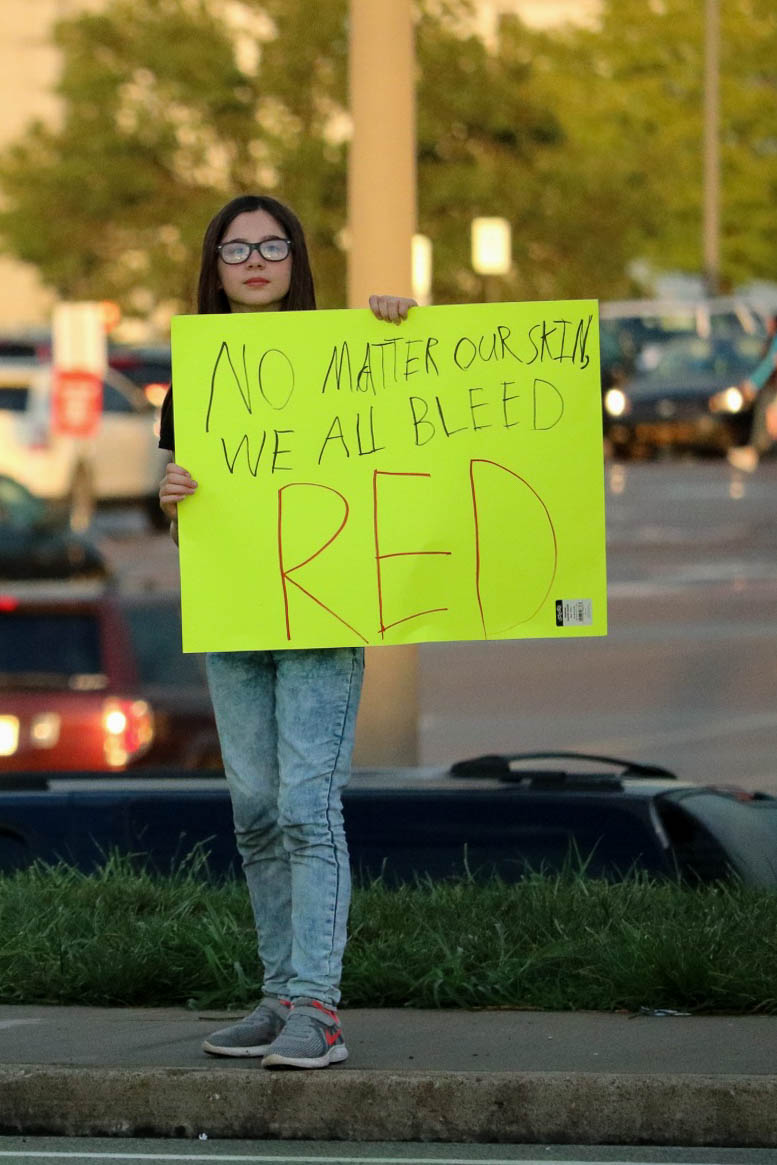 NO MATTER OUR SKIN,
WE ALL BLEED
RED